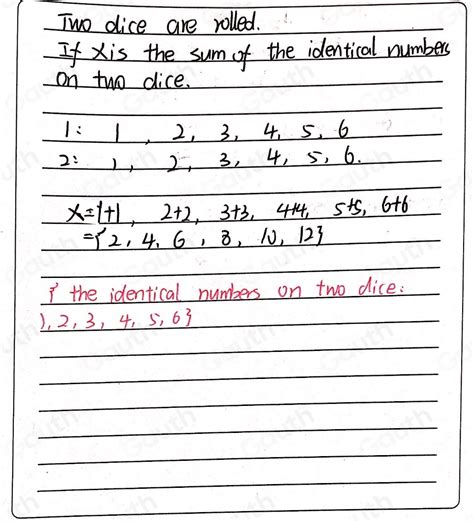 Two dice are rolled.
If X is the sum of the identical numbers
on two dice.
1: 1, 2, 3, 4, 5, 6
2: 1, 2, 3, 4, 5, 6.
X={1+1, 2+2, 3+3, 4+4, 5+5, 6+6
={2, 4, 6, 8, 10, 12}
{ the identical numbers on two dice:
1, 2, 3, 4, 5, 6}